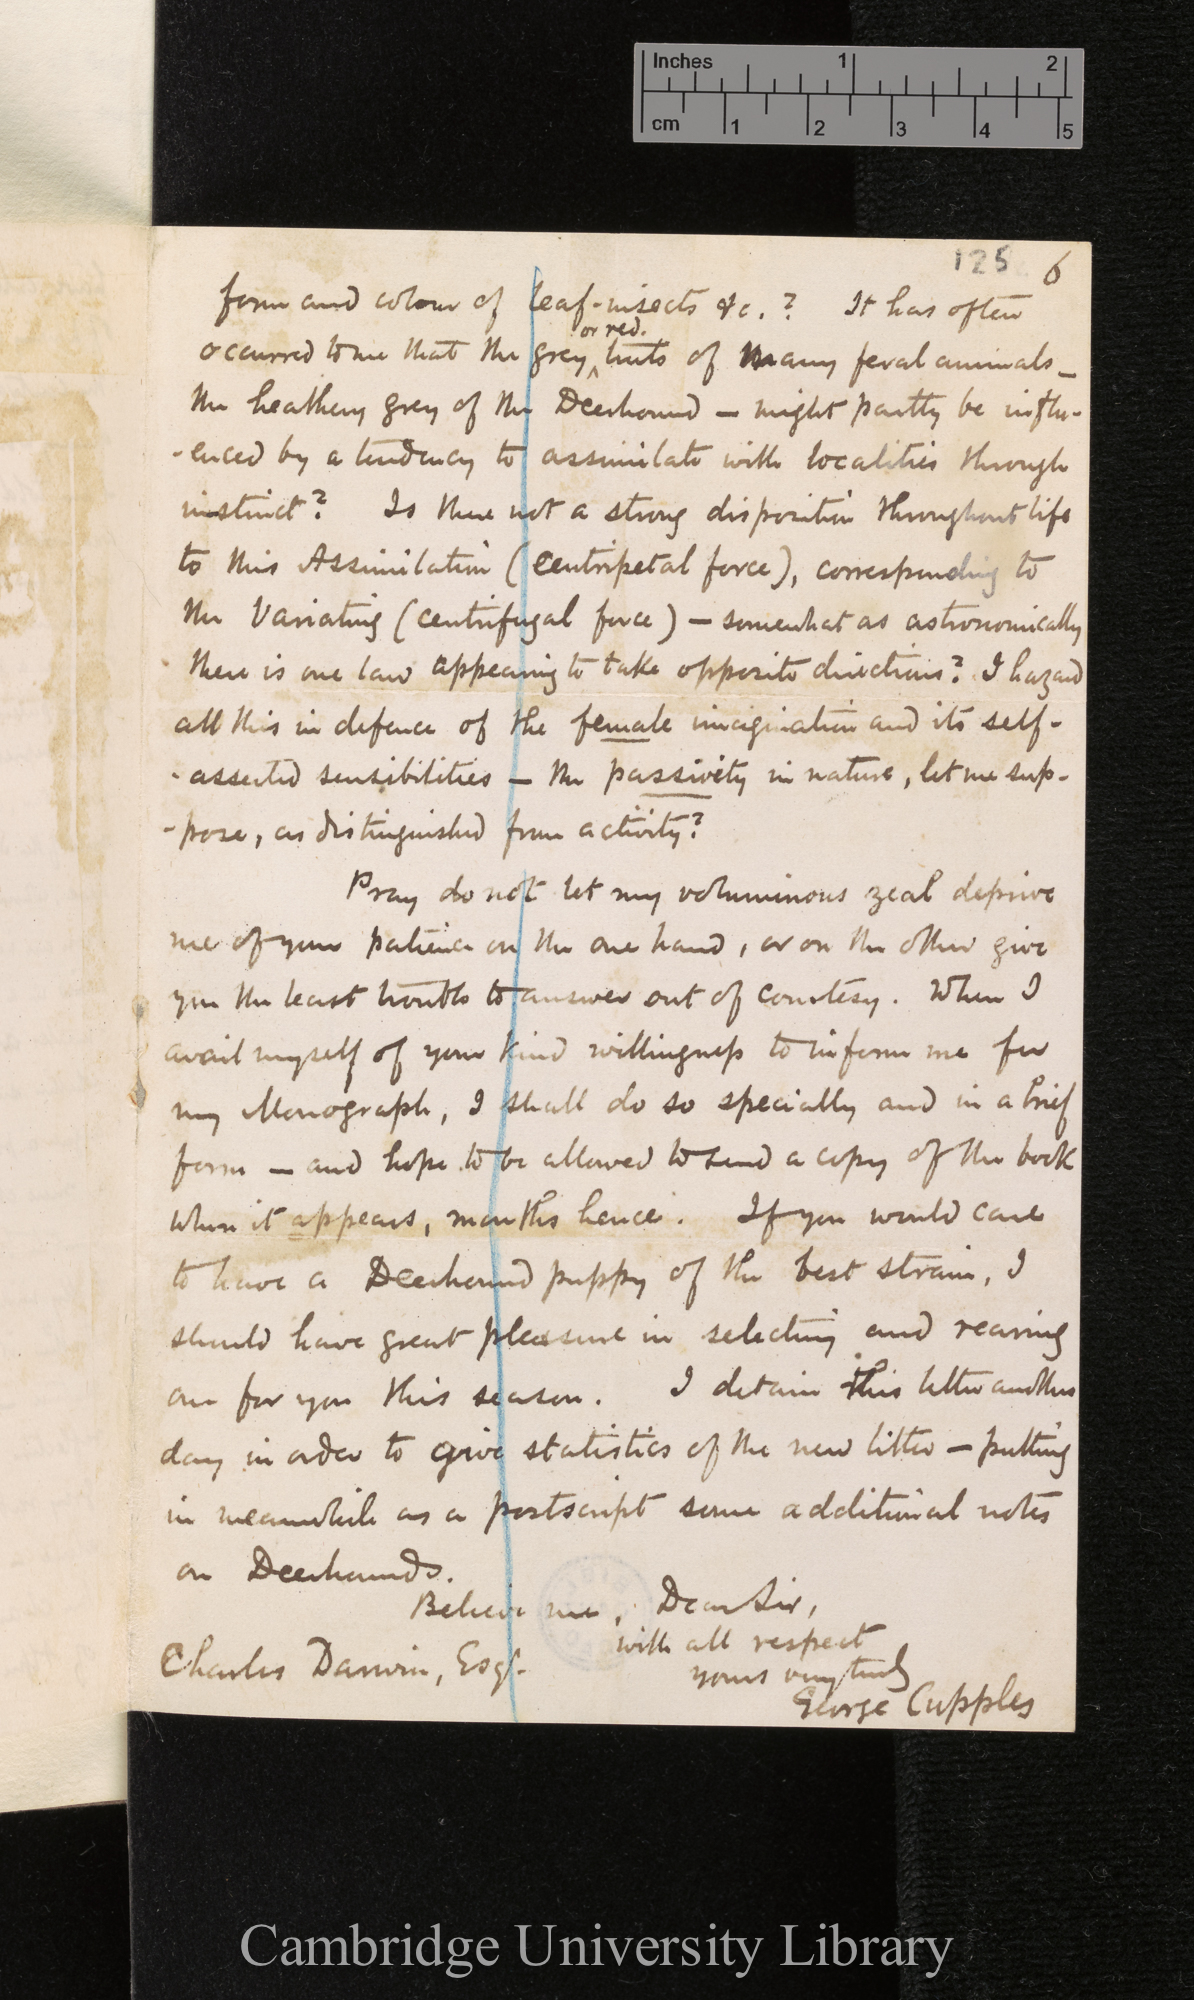 Inches 1 2
cm 1 2 3 4 5
125 6
form and colour of leaf-insects &c.? It has often
or red.
occurred to me that the grey ^ tints of many feral animals —
the heathery grey of the Deerhound — might partly be influ-
-enced by a tendency to assimilate with localities through
instinct? Is there not a strong disposition throughout life
to this Assimilation (centripetal force), corresponding to
the Variating (centrifugal force) — somewhat as astronomically
there is one law appearing to take opposite directions? I hazard
all this in defence of the female imagination and its self-
-asserted sensibilities — the passivity in nature, let me sup-
-pose, as distinguished from activity?
Pray do not let my voluminous zeal deprive
me of your patience on the one hand, or on the other give
you the least trouble to answer out of courtesy. When I
avail myself of your kind willingness to inform me for
my Monograph, I shall do so specially and in a brief
form — and hope to be allowed to send a copy of the book
when it appears, months hence. If you would care
to have a Deerhound puppy of the best strain, I
should have great pleasure in selecting and rearing
one for you this season. I detain this letter another
day in order to give statistics of the new litter — putting
in meanwhile as a postscript some additional notes
on Deerhounds.
Believe me, Dear Sir,
with all respect
yours very truly
Charles Darwin, Esqr.
George Cupples
Cambridge University Library